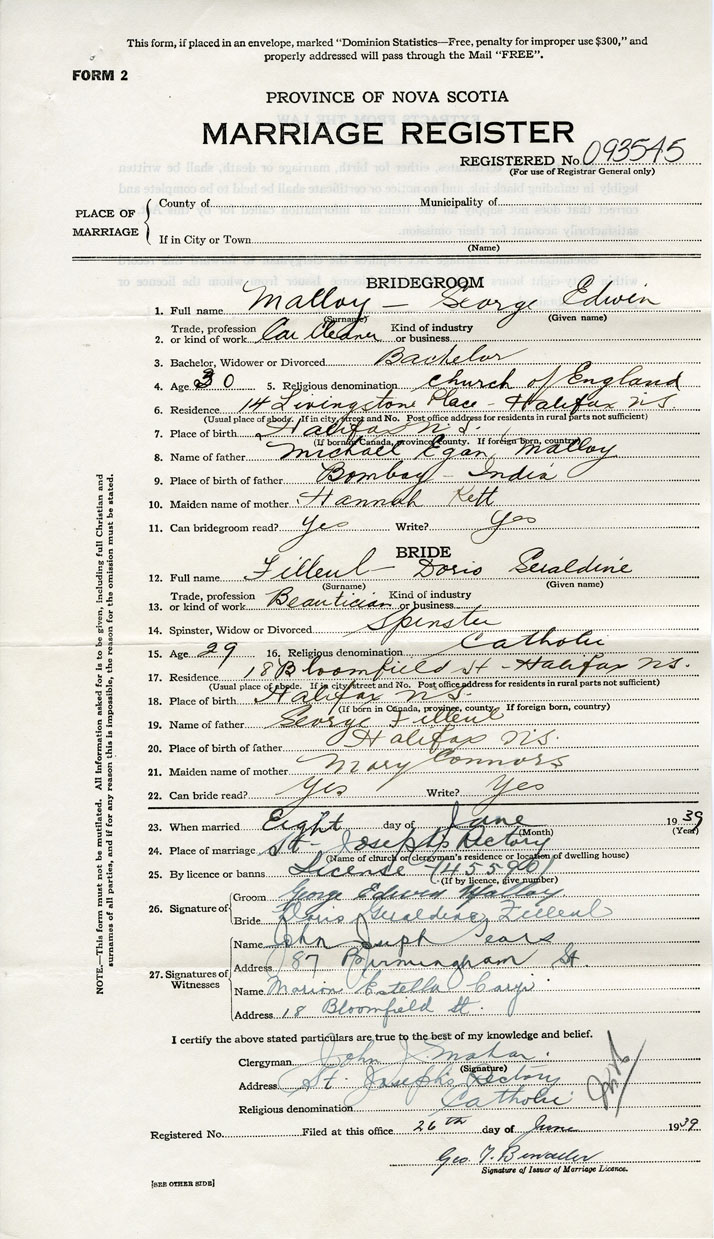 This form, if placed in an envelope, marked “Dominion Statistics—Free, penalty for improper use $300,” and
properly addressed will pass through the Mail “FREE”.
FORM 2
PROVINCE OF NOVA SCOTIA
MARRIAGE REGISTER
REGISTERED No. 093545
(For use of Registrar General only)
PLACE OF MARRIAGE
County of Municipality of
If in City or Town
(Name)
BRIDEGROOM
1. Full name Malloy — George Edwin
(Surname) (Given name)
2. Trade, profession or kind of work Car Cleaner Kind of industry or business
3. Bachelor, Widower or Divorced Bachelor
4. Age 30 5. Religious denomination Church of England
6. Residence 14 Livingstone Place - Halifax N.S.
(Usual place of abode. If in city, street and No. Post office address for residents in rural parts not sufficient)
7. Place of birth Halifax N.S.
(If born in Canada, province, county. If foreign born, country)
8. Name of father Michael Egan Malloy
9. Place of birth of father Bombay - India
10. Maiden name of mother Hannah Kett
11. Can bridegroom read? Yes Write? Yes
BRIDE
12. Full name Filleul - Doris Geraldine
(Surname) (Given name)
13. Trade, profession or kind of work Beautician Kind of industry or business
14. Spinster, Widow or Divorced Spinster
15. Age 29 16. Religious denomination Catholic
17. Residence 18 Bloomfield St - Halifax N.S.
(Usual place of abode. If in city, street and No. Post office address for residents in rural parts not sufficient)
18. Place of birth Halifax N.S.
(If born in Canada, province, county. If foreign born, country)
19. Name of father George Filleul
20. Place of birth of father Halifax N.S.
21. Maiden name of mother Mary Connors
22. Can bride read? Yes Write? Yes
23. When married Eight day of June 1939
(Month) (Year)
24. Place of marriage St. Joseph's Rectory
(Name of church or clergyman's residence or location of dwelling house)
25. By licence or banns License
(If by licence, give number)
26. Signature of
Groom George Edwin Malloy
Bride Doris Geraldine Filleul
27. Signatures of Witnesses
Name John Joseph
Address 187 Birmingham St.
Name Marion Estella
Address 18 Bloomfield St.
I certify the above stated particulars are true to the best of my knowledge and belief.
Clergyman John J. Mahar
(Signature)
Address St. Joseph's Rectory
Religious denomination Catholic
Registered No. Filed at this office 26th day of June 1939
Geo. T.
Signature of Issuer of Marriage Licence.
[SEE OTHER SIDE]
NOTE.—This form must not be mutilated. All information asked for is to be given, including full Christian and
surnames of all parties, and if for any reason this is impossible, the reason for the omission must be stated.